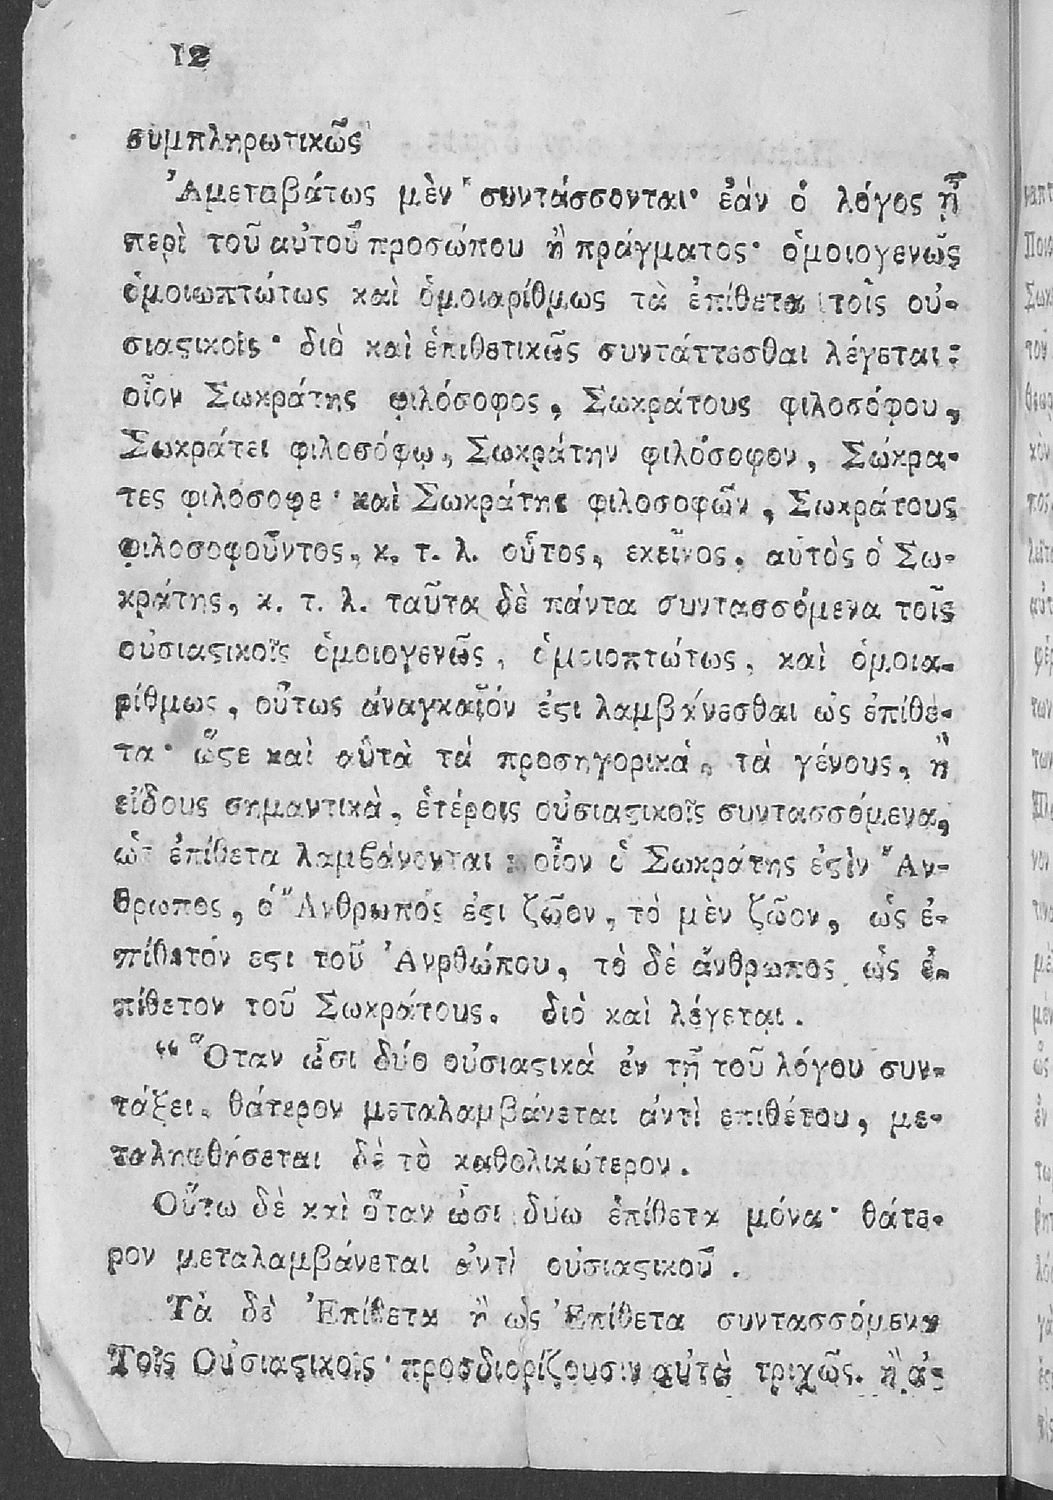 12
συμπληρωτικῶς
Ἀμεταβάτως μὲν συντάσσονται· ἐὰν ὁ λόγος ᾖ
περὶ τοῦ αὐτοῦ προσώπου ἢ πράγματος· ὁμοιογενῶς
ὁμοιωπτώτως καὶ ὁμοιαρίθμως τὰ ἐπίθετα τοῖς οὐ-
σιαϛικοῖς· διὸ καὶ ἐπιθετικῶς συντάττεσθαι λέγεται:
οἷον Σωκράτης φιλόσοφος, Σωκράτους φιλοσόφου,
Σωκράτει φιλοσόφῳ, Σωκράτην φιλόσοφον, Σώκρα-
τες φιλόσοφε· καὶ Σωκράτης φιλοσοφῶν, Σωκράτους
φιλοσοφοῦντος, κ. τ. λ. οὗτος, εκεῖνος, αὐτὸς ὁ Σω-
κράτης, κ. τ. λ. ταῦτα δὲ πάντα συντασσόμενα τοῖς
οὐσιαϛικοῖς ὁμοιογενῶς, ὁμοιοπτώτως, καὶ ὁμοια-
ρίθμως, οὕτως ἀναγκαῖόν ἐϛι λαμβάνεσθαι ὡς ἐπίθε-
τα· ὥϛε καὶ αὐτὰ τὰ προσηγορικὰ, τὰ γένους, ἢ
εἴδους σημαντικὰ, ἑτέροις οὐσιαϛικοῖς συντασσόμενα,
ὡς ἐπίθετα λαμβάνονται : οἷον ὁ Σωκράτης ἐϛὶν Ἄν-
θρωπος, ὁ Ἄνθρωπός ἐϛι ζῶον, τὸ μὲν ζῶον, ὡς ἐ-
πίθετόν εϛι τοῦ Ἀνρθώπου, τὸ δὲ ἄνθρωπος ὡς ἐ-
πίθετον τοῦ Σωκράτους. διὸ καὶ λέγεται.
“ Ὅταν ὦσι δύο οὐσιαϛικὰ ἐν τῇ τοῦ λόγου συν-
τάξει, θάτερον μεταλαμβάνεται ἀντὶ επιθέτου, με-
ταληφθήσεται δὲ τὸ καθολικώτερον.
Οὕτω δὲ καὶ ὅταν ὦσι δύω ἐπίθετα μόνα· θάτε-
ρον μεταλαμβάνεται ἀντὶ οὐσιαϛικοῦ.
Τὰ δὲ Ἐπίθετα ἢ ὡς Ἐπίθετα συντασσόμενα
Τοῖς Οὐσιαϛικοῖς· προσδιορίζουσιν αὐτὰ τριχῶς. ἢ ἀ-